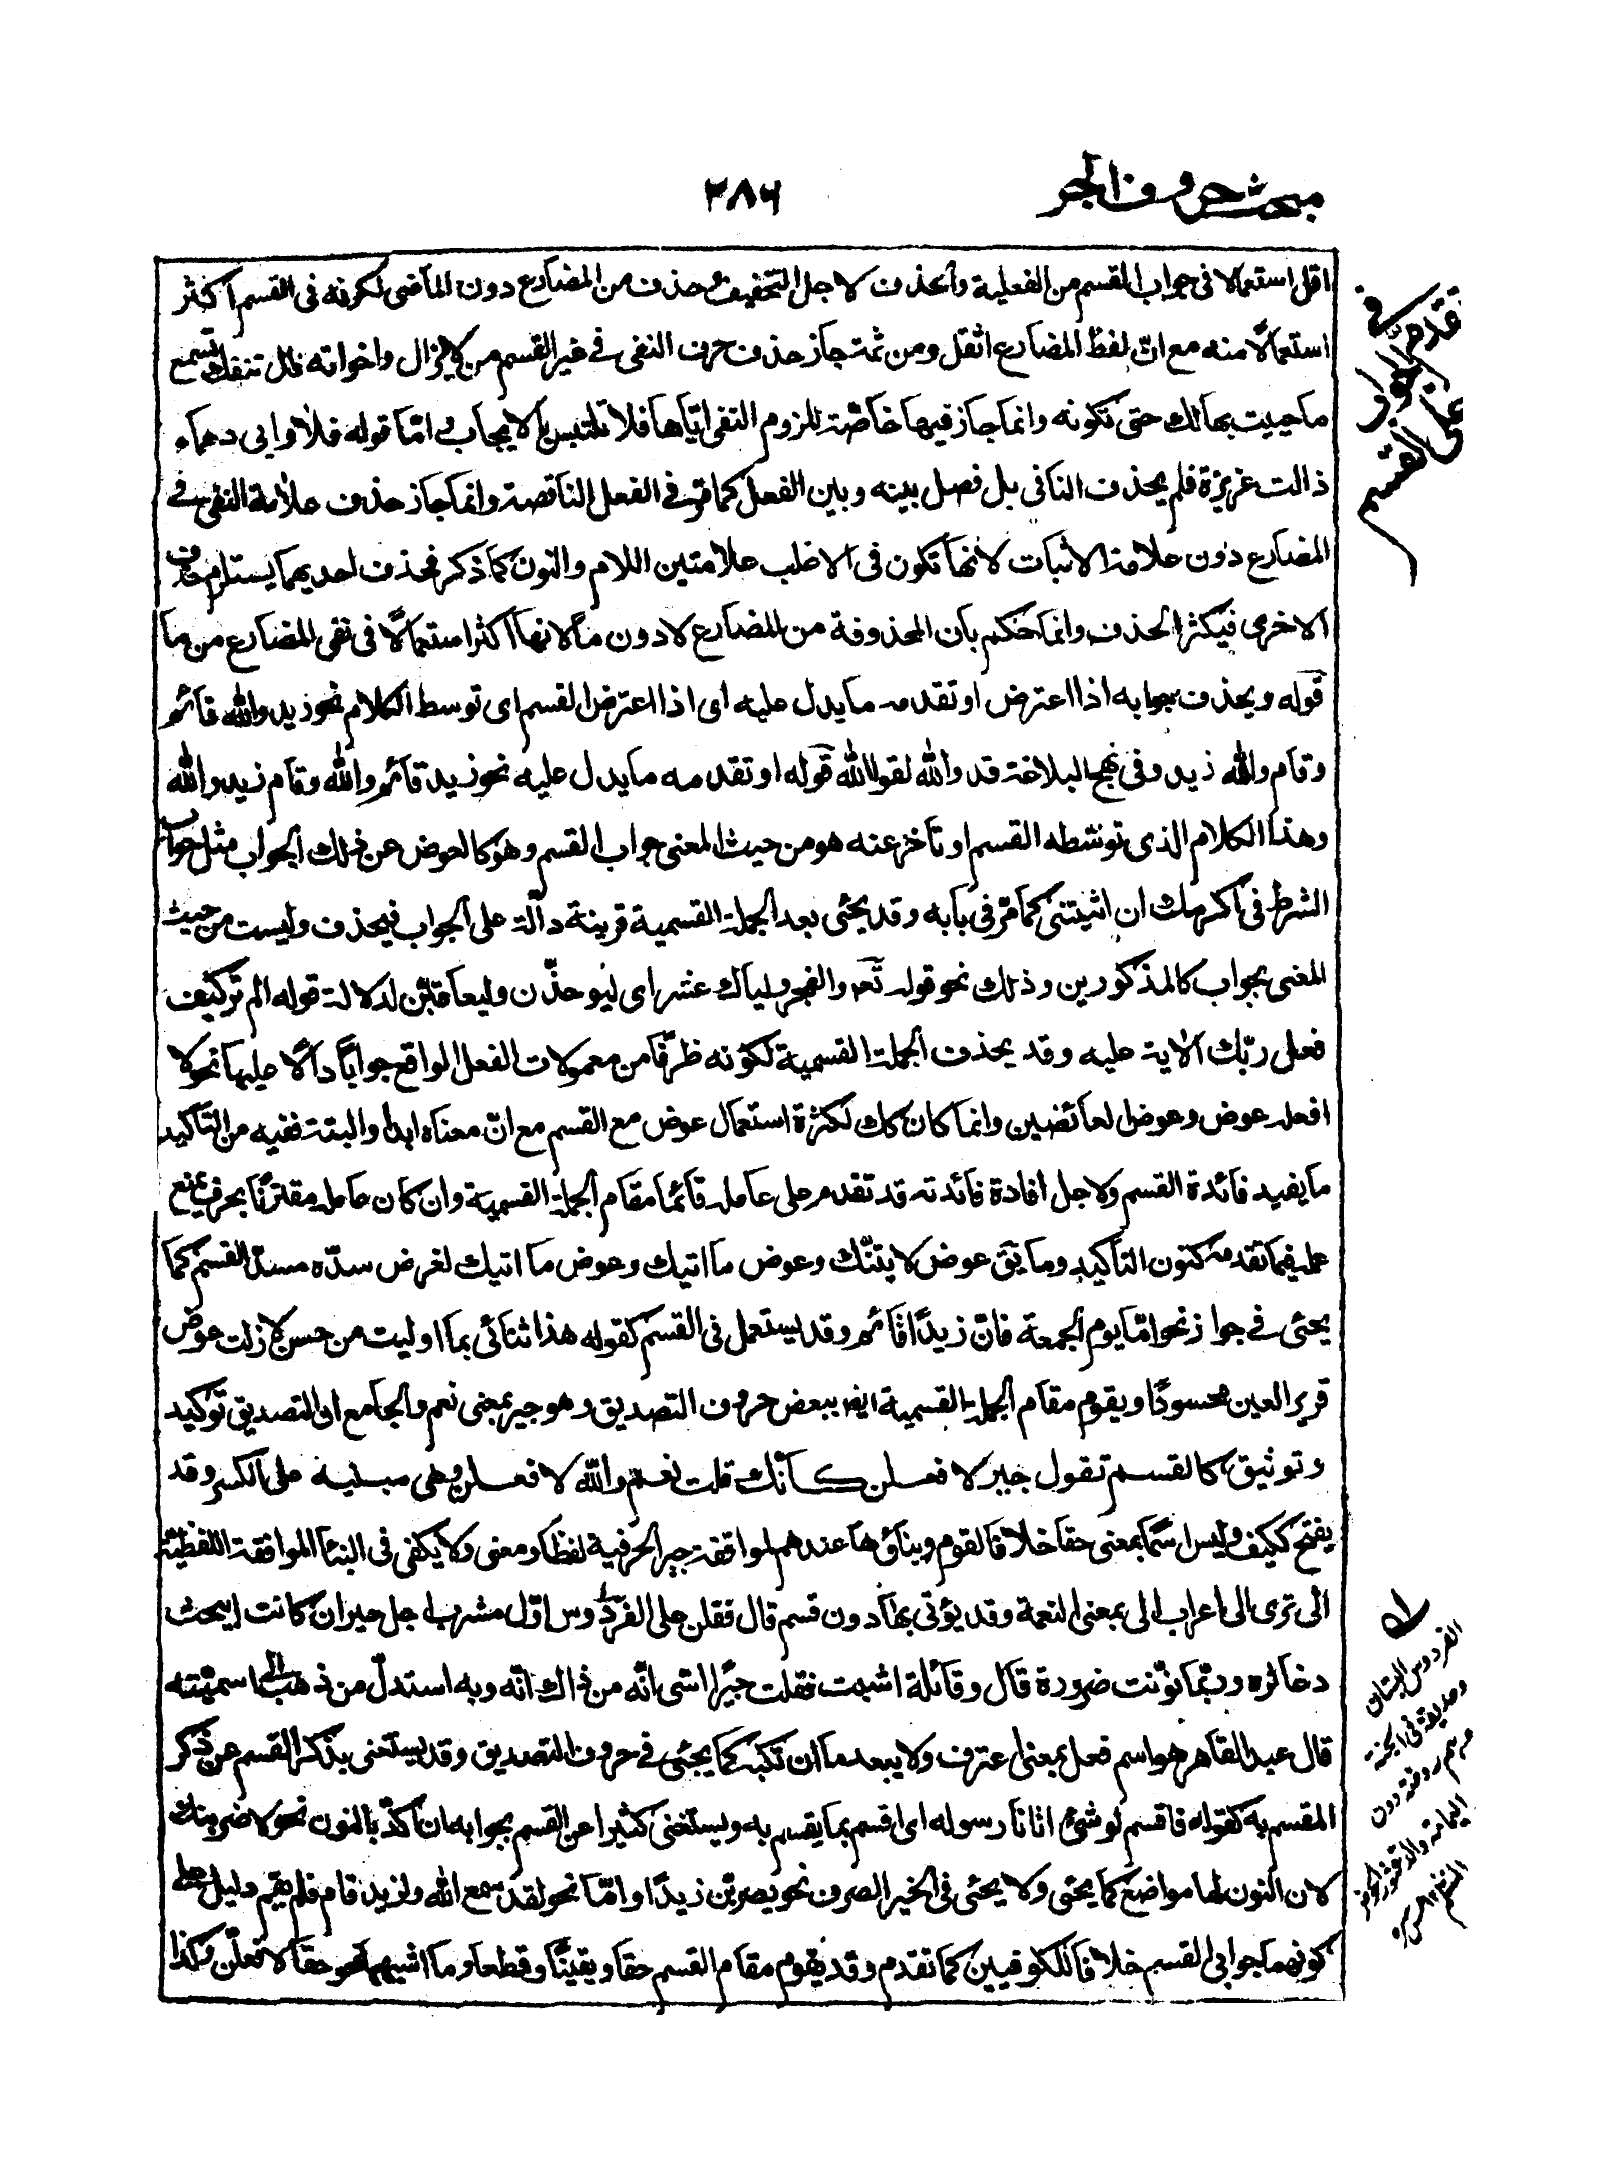 مبحث حروف الجر
٣٨٦
اقل استعمالا فى جواب القسم من الفعلية والحذف لاجل التخفيف وحذف من المضارع دون الماضى لكونه فى القسم اكثر
استعمالًا منه مع انّ لفظ المضارع اثقل ومن ثمة جاز حذف حرف النفى فى غير القسم من لايزال واخواته قال تنفك تسمع
ما حييت بهالك حتى تكونه وانما جاز فيها خاصّة للزوم النفى ايّاها فلا تلتبس بالايجاب امّا قوله فلا وابى دهماء
ذالت عزيزة فلم يحذف النافى بل فصل بينه وبين الفعل كما مرّ فى الفعل الناقصة وانما جاز حذف علامة النفى فى
المضارع دون علامة الاثبات لانها تكون فى الاغلب علامتين اللام والنون كما ذكر فحذف احديهما يستلزم حذف
الاخرى فيكثر الحذف وانما حكم بان المحذوفة من المضارع لا دون ما لانها اكثر استعمالًا فى نفى المضارع من ما
قوله ويحذف جوابه اذا اعترض او تقدمه ما يدل عليه اى اذا اعترض القسم اى توسط الكلام نحو زيد والله قائم
وقام والله زيد وفى نهج البلاغة قد والله لقوا الله قوله او تقدمه ما يدل عليه نحو زيد قائم والله وقام زيد والله
وهذا الكلام الذى توسّطه القسم او تأخر عنه هو من حيث المعنى جواب القسم وهو كالعوض عن ذلك الجواب مثل جواب
الشرط فى اكرمك ان اتيتنى كما مرّ فى بابه وقد يجئى بعد الجملة القسمية قرينة دالّة على الجواب فيحذف وليست من حيث
المعنى بجواب كالمذكورين وذلك نحو قوله تعم والفجر وليال عشر اى ليؤخذنّ وليعاقبنّ لدلالة قوله الم تر كيف
فعل ربّك الاية عليه وقد يحذف الجملة القسمية لكونه ظرفًا من معمولات الفعل الواقع جوابًا دالًا عليها نحو لا
افعله عوض وعوض العائضين وانما كان كك لكثرة استعمال عوض مع القسم مع انّ معناه ابدا والبتة ففيه من التاكيد
ما يفيد فائدة القسم ولاجل افادة فائدته قد تقدم على عامله قائما مقام الجملة القسمية وان كان عامله مقترنًا بحرف يمنع
عمله فيما تقدمه كنون التأكيد وما يق عوض لايتنّك وعوض ما اتيك وعوض ما اتيك لغرض سدّه مسدّ القسم كما
يجئى فى جواز نحو امّا يوم الجمعة فانّ زيدًا قائم وقد يستعمل فى القسم كقوله هذا ثنائى بما اوليت من حسن لا زلت عوض
قرير العين محسودًا ويقوم مقام الجملة القسمية ايضا بعض حروف التصديق وهو جير بمعنى نعم والجامع ان التصديق توكيد
وتوثيق كالقسم تقول جير لافعلن كانّك قلت نعم والله لافعلن وهى مبنيه على الكسر وقد
يفتح ككيف وليس اسمًا بمعنى حقا خلافا لقوم وبناؤها عندهم لموافقة جير الحرفية لفظا ومعنى ولا يكفى فى البناء الموافقة اللفظيّة
الى ترى الى اعراب الى بمعنى النعمة وقد يؤتى بها دون قسم قال فقلن على الفردوس اوّل مشرب اجل جير ان كانت ابيحت
دعائره وربّما نوّنت ضرورة قال وقائلة اشيت فقلت جيرٌ اسّى انّه من ذاك انّه وبه استدلّ من ذهب الى اسميّته
قال عبد القاهر هو اسم فعل بمعنى اعترف ولا يبعد ما ان تكبه كما يجئى فى حروف التصديق وقد يستغنى بذكر القسم عن ذكر
المقسم به كقوله فاقسم لو شئ اتانا رسوله اى اقسم بما يقسم به ويستغنى كثيرا عن القسم بجوابه ان اكّد بالنون نحو لاضربنك
لان النون لها مواضع كما يجئى ولا يجئى فى الخبر الصرف نحو يصربّن زيدًا وامّا نحو لقد سمع الله ولزيد قام فلم يقم دليل على
كونهما جوابى القسم خلافا للكوفيين كما تقدم وقد يقوم مقام القسم حقا ويقينًا وقطعا وما اشبهها نحو حقا لافعلنّ وكذا
على القسم
الفردوس البستان
وحديقة فى الجنة